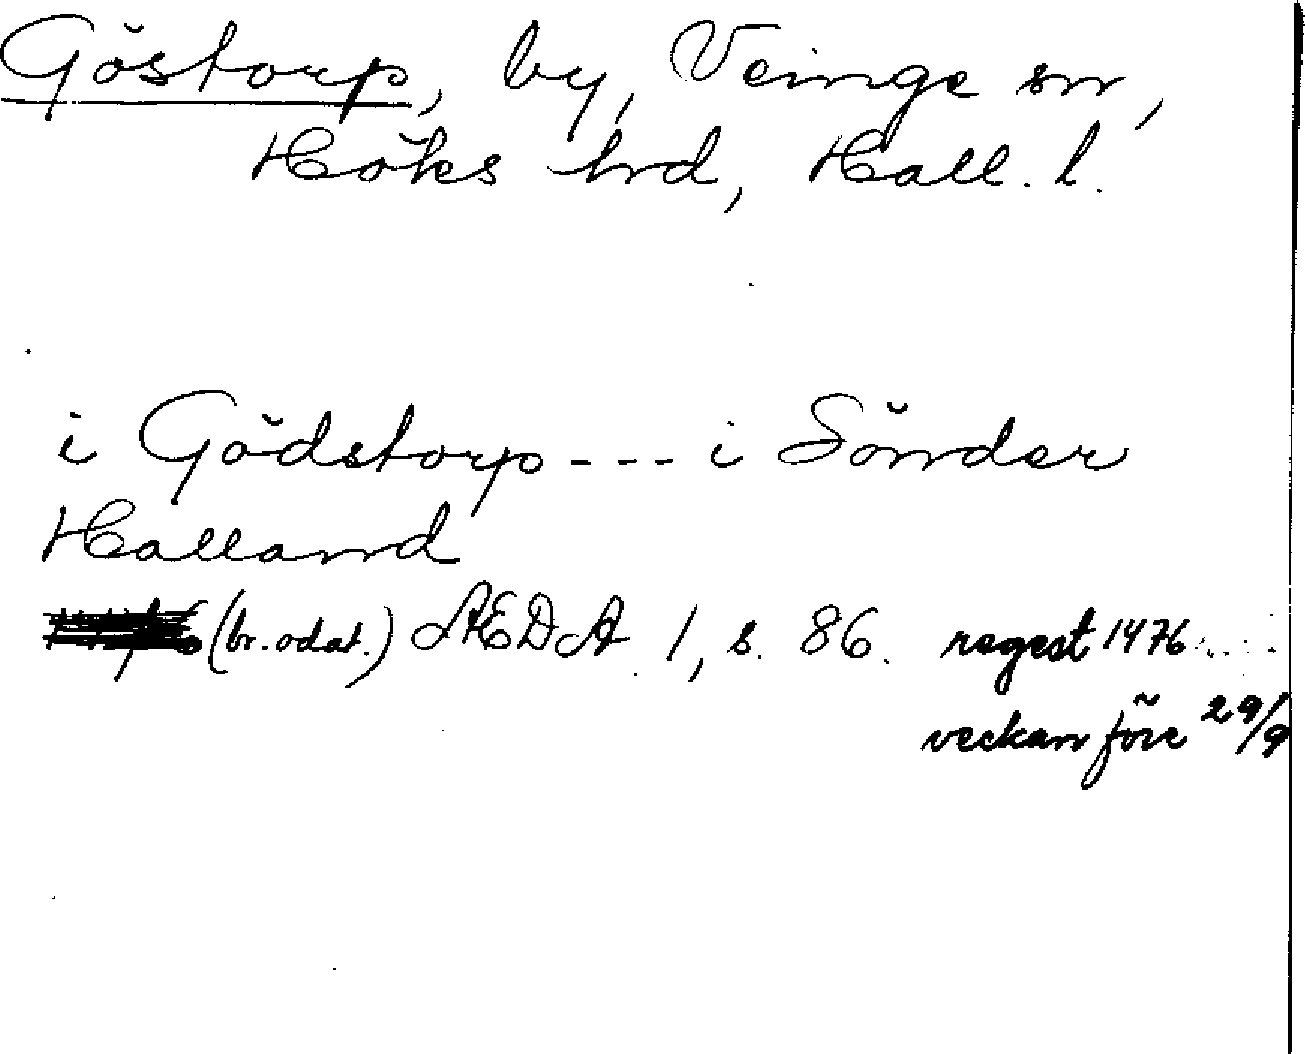 Göstorp, by, Veinge sn,
Höks hrd, Hall. l.
i Gödstorp --- i Sönder
Halland
(br. odat.) ÆDA 1, s. 86. regest 1476
veckan före 29/9